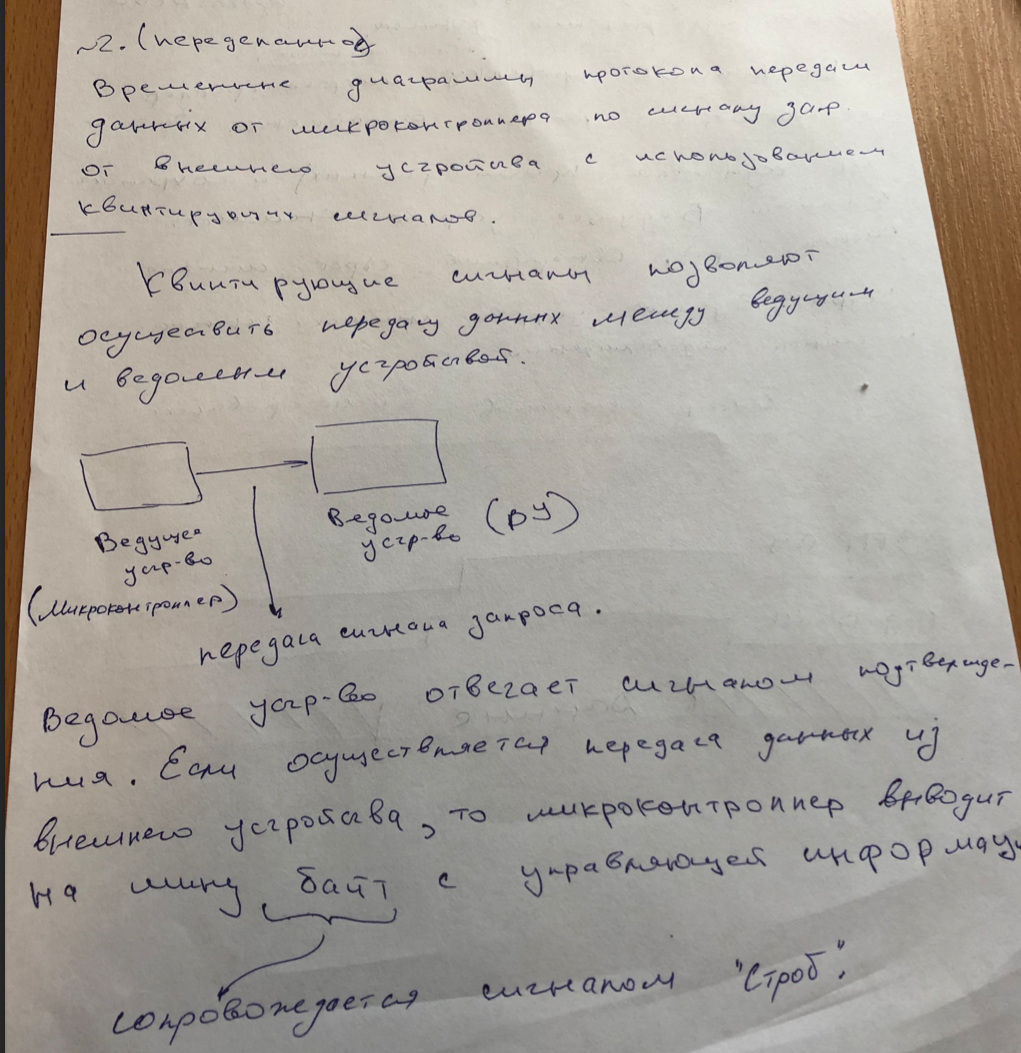 ~2. (переделанное)
Временные диаграммы протокола передачи
данных от микроконтроллера по сигналу зап.
от внешнего устройства с использованием
квинтирующих сигналов.
Квинтирующие сигналы позволяют
осуществить передачу данных между ведущим
и ведомым устройствой.
Ведущее
устр-во
(Микроконтроллер)
Ведомое
устр-во (ВУ)
передача сигнала запроса.
Ведомое устр-во отвечает сигналом подтвержде-
ния. Если осуществляется передача данных из
внешнего устройства, то микроконтроллер выводит
на шину байт с управляющей информаци
сопровождается сигналом "Строб".